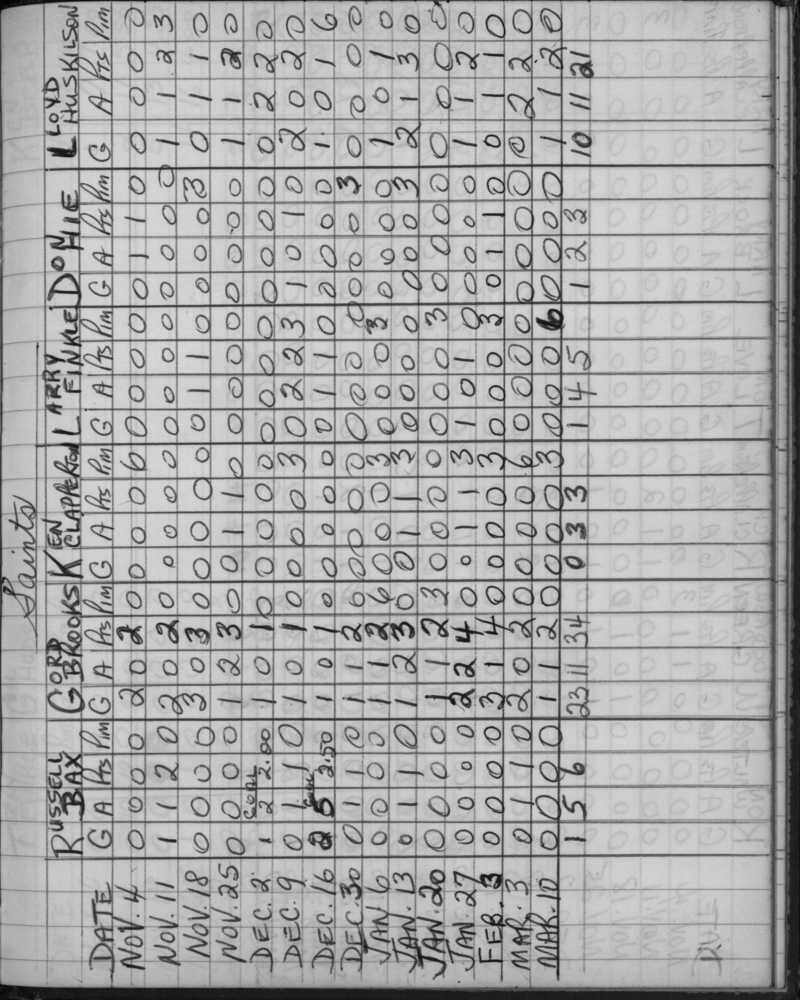 Saints
RUSSELL BAX GORD BROOKS KEN CLAPPERTON LARRY FINKLE DON HIE LLOYD HUSKILSON
DATE G A Pts Pim G A Pts Pim G A Pts Pim G A Pts Pim G A Pts Pim G A Pts Pim
NOV. 4 0 0 0 0 2 0 2 0 0 0 0 6 0 0 0 0 0 1 1 0 0 0 0 0
NOV. 11 1 1 2 0 2 0 2 0 0 0 0 0 0 0 0 0 0 0 0 0 1 1 2 3
NOV. 18 0 0 0 0 3 0 3 0 0 0 0 0 0 1 1 0 0 0 0 3 0 1 1 0
NOV. 25 0 0 0 0 1 2 3 0 0 1 1 0 0 0 0 0 0 0 0 0 1 1 2 0
DEC. 2 1 2 GOAL 2.00 1 0 1 0 0 0 0 0 0 0 0 0 0 0 0 0 0 2 2 0
DEC. 9 0 1 1 0 1 0 1 0 0 0 0 3 0 2 2 3 1 0 1 0 2 0 2 0
DEC. 16 2 5 Goal 2.50 1 0 1 0 0 0 0 0 0 1 1 0 0 0 0 0 1 0 1 6
DEC. 30 0 1 1 0 1 1 2 0 0 0 0 0 0 0 0 0 0 0 0 3 0 0 0 0
JAN. 6 0 0 0 0 1 1 2 6 0 0 0 3 0 0 0 3 0 0 0 0 1 0 1 0
JAN. 13 0 1 1 0 1 2 3 0 0 1 1 3 0 0 0 0 0 0 0 3 2 1 3 0
JAN. 20 0 0 0 0 1 1 2 3 0 0 0 0 0 0 0 3 0 0 0 0 0 0 0 0
JAN. 27 0 0 0 0 2 2 4 0 0 1 1 3 1 0 1 0 0 0 0 0 1 1 2 0
FEB. 3 0 0 0 0 3 1 4 0 0 0 0 3 0 0 0 3 0 1 1 0 0 1 1 0
MAR. 3 0 1 1 0 2 0 2 0 0 0 0 6 0 0 0 0 0 0 0 0 0 2 2 0
MAR. 10 0 0 0 0 1 1 2 0 0 0 0 3 0 0 0 6 0 0 0 0 1 1 2 0
1 5 6 23 11 34 0 3 3 1 4 5 1 2 3 10 11 21